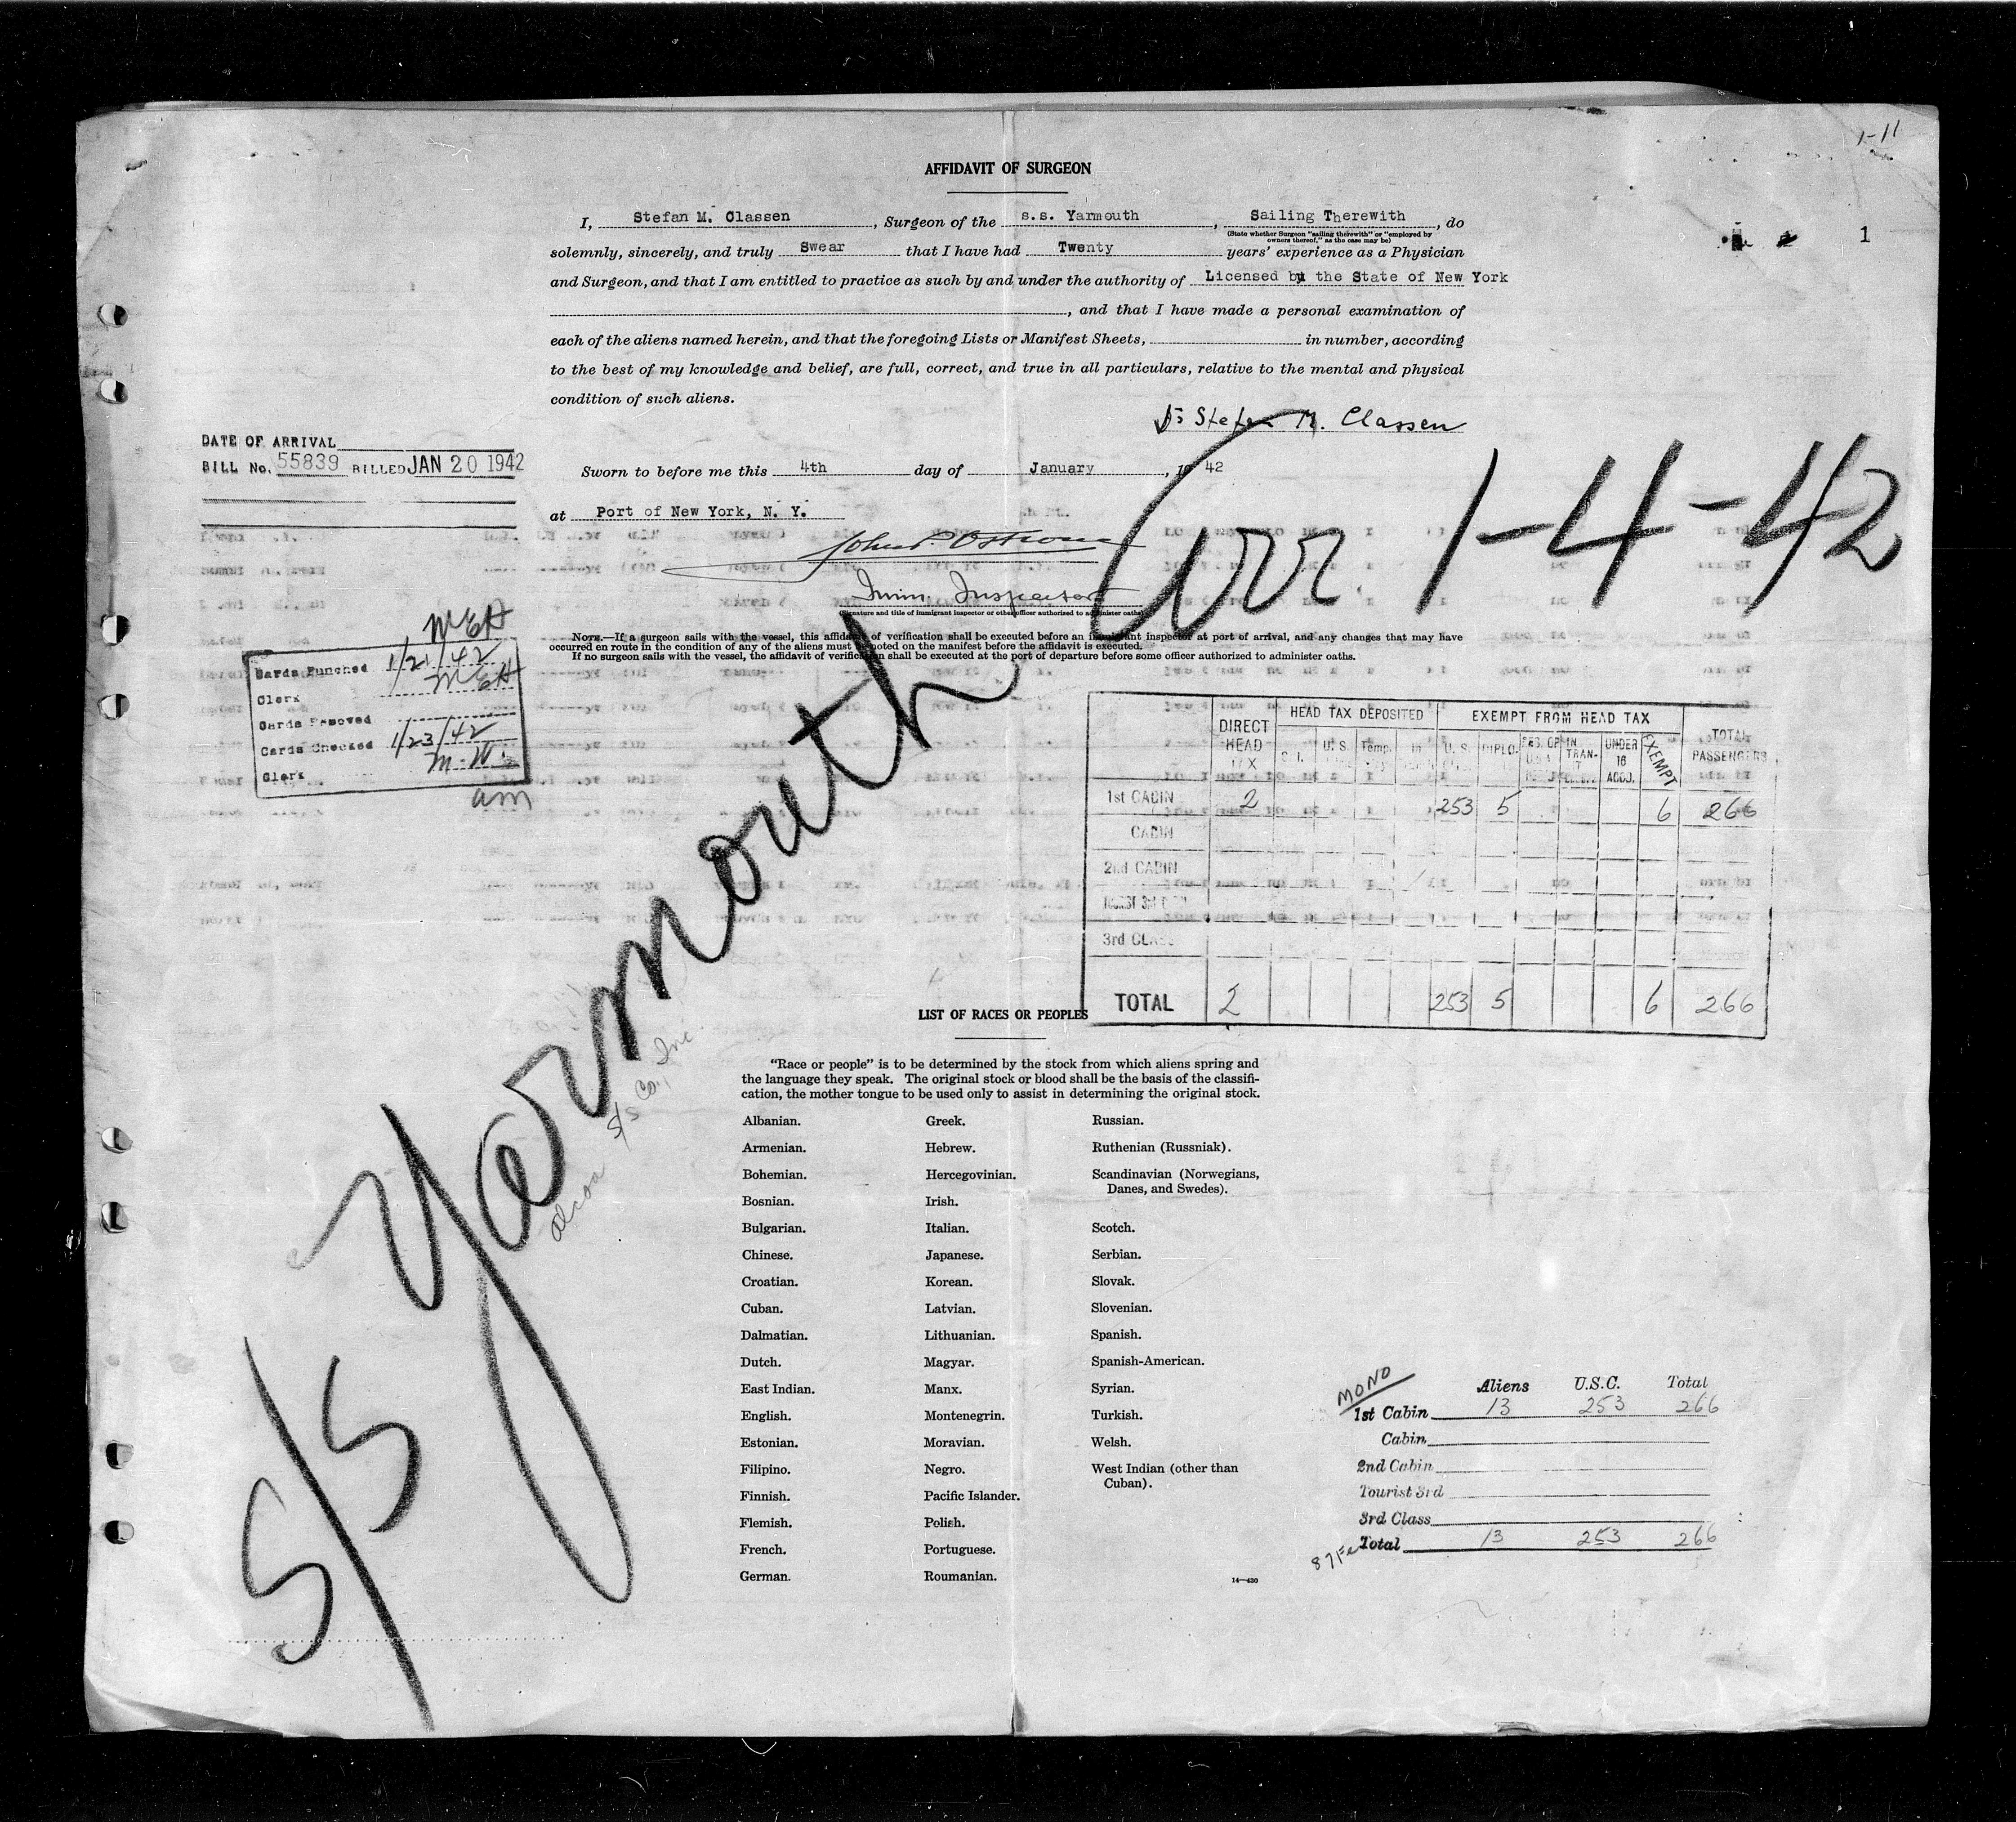 1-11
AFFIDAVIT OF SURGEON
1
I, Stefan M. Classen, Surgeon of the s.s. Yarmouth, Sailing Therewith, do
(State whether Surgeon "sailing therewith" or "employed by
owners thereof," as the case may be)
solemnly, sincerely, and truly Swear that I have had Twenty years' experience as a Physician
and Surgeon, and that I am entitled to practice as such by and under the authority of Licensed by the State of New York
, and that I have made a personal examination of
each of the aliens named herein, and that the foregoing Lists or Manifest Sheets, in number, according
to the best of my knowledge and belief, are full, correct, and true in all particulars, relative to the mental and physical
condition of such aliens.
Stefan M. Classen
DATE OF ARRIVAL
BILL No. 55839 BILLED JAN 20 1942
Sworn to before me this 4th day of January, 19 42
at Port of New York, N. Y.
Arr. 1-4-42
Imm. Inspector
(Signature and title of immigrant inspector or other officer authorized to administer oaths)
NOTE.—If a surgeon sails with the vessel, this affidavit of verification shall be executed before an immigrant inspector at port of arrival, and any changes that may have
occurred en route in the condition of any of the aliens must be noted on the manifest before the affidavit is executed.
If no surgeon sails with the vessel, the affidavit of verification shall be executed at the port of departure before some officer authorized to administer oaths.
MEH
Cards Punched 1/21/42
Clerk MEH
Cards Removed
Cards Checked 1/23/42
Clerk M.W.
am
S/S Yarmouth
Alcoa S/S Co., Inc.
DIRECT HEAD TAX HEAD TAX DEPOSITED EXEMPT FROM HEAD TAX TOTAL PASSENGERS
U. S. Temp. In U. S. DIPLO. RES. OF U.S.A. IN TRAN- UNDER 16 ACCO. EXEMPT
1st CABIN 2 253 5 6 266
CABIN
2nd CABIN
3rd CLASS
TOTAL 2 253 5 6 266
LIST OF RACES OR PEOPLES
"Race or people" is to be determined by the stock from which aliens spring and
the language they speak. The original stock or blood shall be the basis of the classifi-
cation, the mother tongue to be used only to assist in determining the original stock.
Albanian.
Armenian.
Bohemian.
Bosnian.
Bulgarian.
Chinese.
Croatian.
Cuban.
Dalmatian.
Dutch.
East Indian.
English.
Estonian.
Filipino.
Finnish.
Flemish.
French.
German.
Greek.
Hebrew.
Hercegovinian.
Irish.
Italian.
Japanese.
Korean.
Latvian.
Lithuanian.
Magyar.
Manx.
Montenegrin.
Moravian.
Negro.
Pacific Islander.
Polish.
Portuguese.
Roumanian.
Russian.
Ruthenian (Russniak).
Scandinavian (Norwegians,
Danes, and Swedes).
Scotch.
Serbian.
Slovak.
Slovenian.
Spanish.
Spanish-American.
Syrian.
Turkish.
Welsh.
West Indian (other than
Cuban).
14—430
MONO
Aliens U.S.C. Total
1st Cabin 13 253 266
Cabin
2nd Cabin
Tourist 3rd
3rd Class
Total 13 253 266